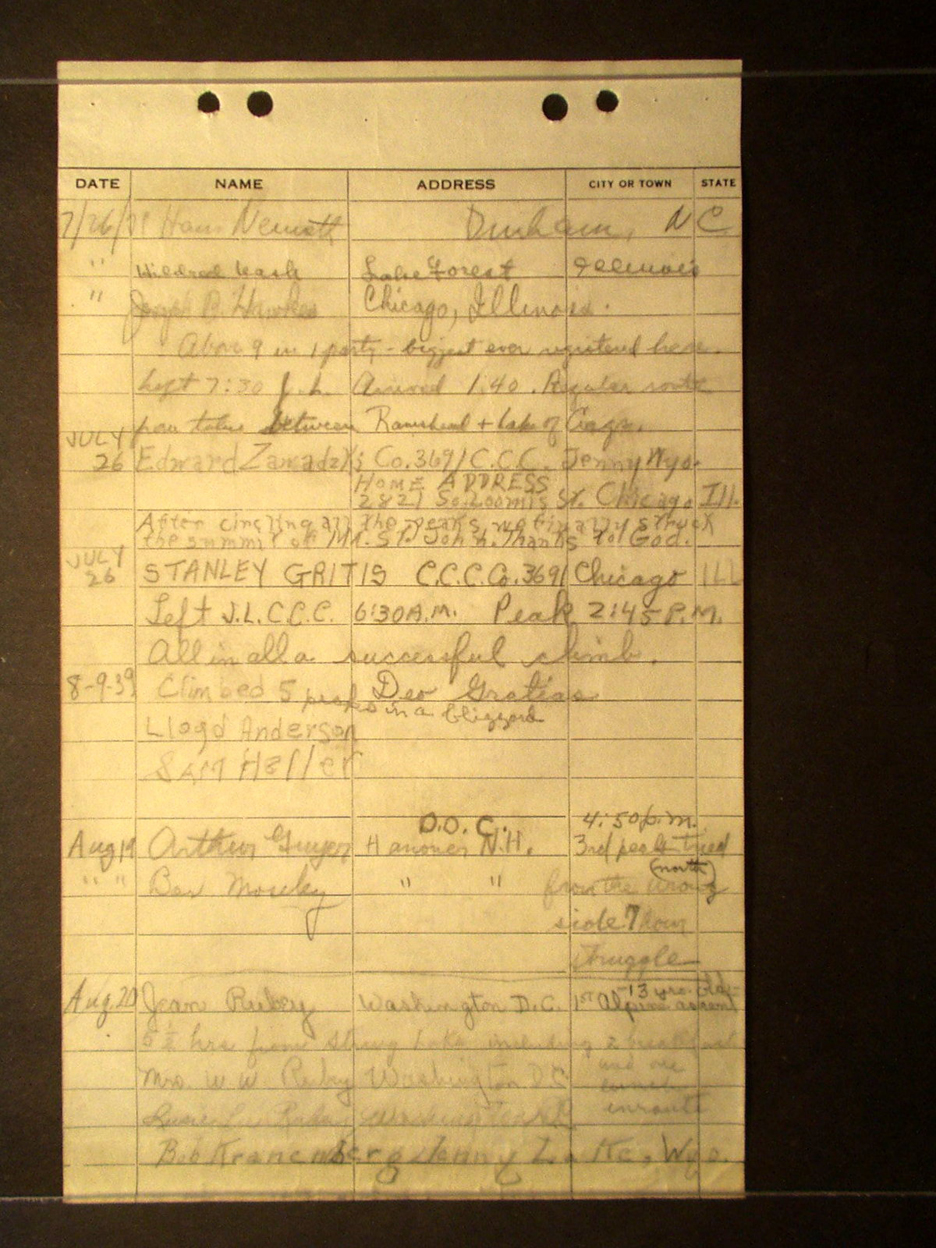 DATE NAME ADDRESS CITY OR TOWN STATE
7/26/ Hans Durham, N C
" Mildred Lake Forest Illinois
" Joseph B. Hawkes Chicago, Illinois.
Above 9 in 1 party - biggest ever registered here.
Left 7:30 Arrived 1:40. Regular route
between Ramshead + Lake of Crags.
JULY
26 Edward Zawadzki Co. 3691 C.C.C. Jenny Wyo.
HOME ADDRESS
2821 So. Loomis St. Chicago Ill.
After circling all the peaks we finally struck
the summit of Mt. St. John. Thanks to God.
JULY
26 STANLEY GRITIS C.C.C. Co. 3691 Chicago ILL
Left J.L.C.C.C. 6:30 A.M. Peak 2:45 P.M.
All in all a successful climb.
8-9-39 Climbed 5 peaks in a blizzard Deo Gratias
Lloyd Anderson
Sam Heller
D.O.C. 4:50 p.m.
Aug 19 Arthur Hanover N.H. 3rd peak tried
" " Ben " " from the wrong (north)
side 7 hour
struggle
Aug. 20 Jean Ruby Washington D.C. 1st Alpine ascent - 13 yrs. old -
5 1/2 hrs from String Lake including 2 breakfast
and one
Mrs. W W Ruby Washington DC
lunch
enroute
Ruby Washington
Bob Kranenberg Jenny Lake, Wyo.